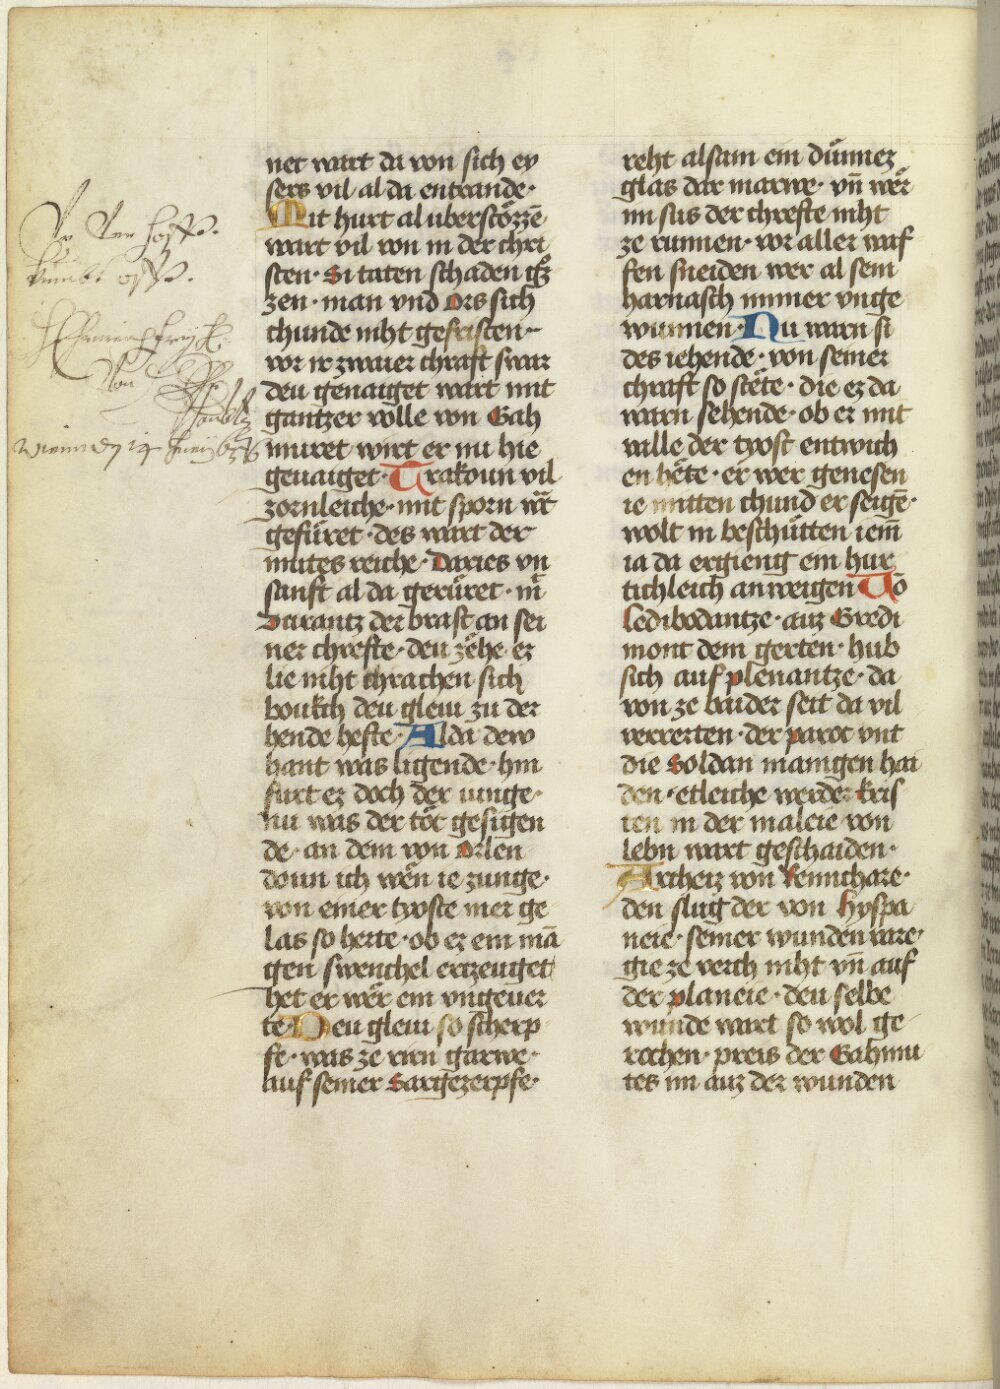 ner wart da von sich ey
sers vil al da entrande·
Mit hurt al uberstözzē
wart vil von in der chri
sten· Si taten schaden gͦz
zen· man vnd Ors sich
chunde niht gefristen·
vor ir zwaier chraft swar
den genaiget wart mit
gantzer volle von Gah
muret wirt er nu hie
genaiget· Trakoun vil
zornleiche· mit sporn wͣt
gefüret· des wart der
mutes reiche· Daries vn
sanft al da gerüret· in̄
Duranz der brast an sei
ner chrefte· den zehe· er
lie niht chrachen sich
boukch den gleui zu der
hende hefte· Alda dew
hant was ligende· hin
furt er doch der iunge·
nu was der töt gesigen
de· an dem von Orlen
doun ich wen ie zunge·
von einer tyoste mer ge
las so herte· ob er ein mā
gen swenchel erzeuget
het er wer ein vngeuer
te· Deu gleui so scherp
fe· was ze virn garwe·
auf seiner Sargezerpfe·
reht alsam ein dünnez
glas dar marwe· vn̄ wer
im sus der chrefte niht
ze runnen· vor aller waf
fen sneiden wer al sein
harnasch immer vnge
wunnen· Nu warn si
des iehende· von seiner
chraft so stete· die ez da
warn sehende· ob er mit
wille der tyost entwich
en hete· er wer genesen
ie mitten chund er seigē·
wolt in beschütten iem̄
ia da ergieng ein hur
tichleich anweigen Vo
Ledibodantze· auz Gredi
mont dem gerten· hub
sich auf plenantze· da
von ze baider seit da vil
verrerten· der paroc vnt
die Soldan manigen hai
den· etleiche werder kris
ten in der maleie von
lebn wart geschaiden·
Archeiz von Rennchare·
den slug der von Hyspa
neie· seiner wunden vare·
gie ze verch niht vn̄ auf
der planeie· den selbe
wunde wart so wol ge
rochen· preis der Gahmu
tes im auz der wunden